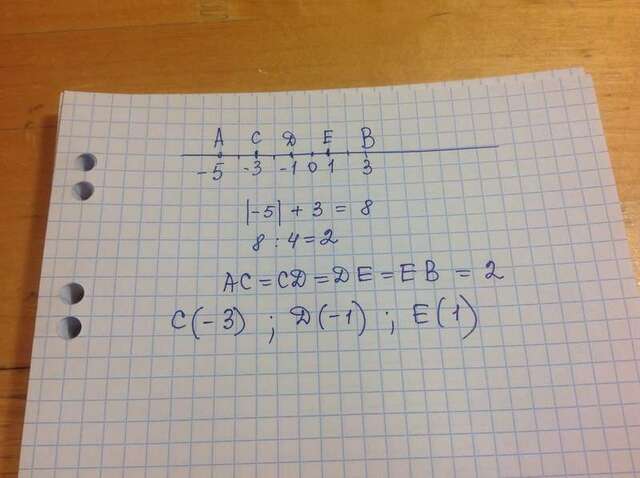 A C D E B
-5 -3 -1 0 1 3
|-5| + 3 = 8
8 : 4 = 2
AC = CD = DE = EB = 2
C(-3) ; D(-1) ; E(1)